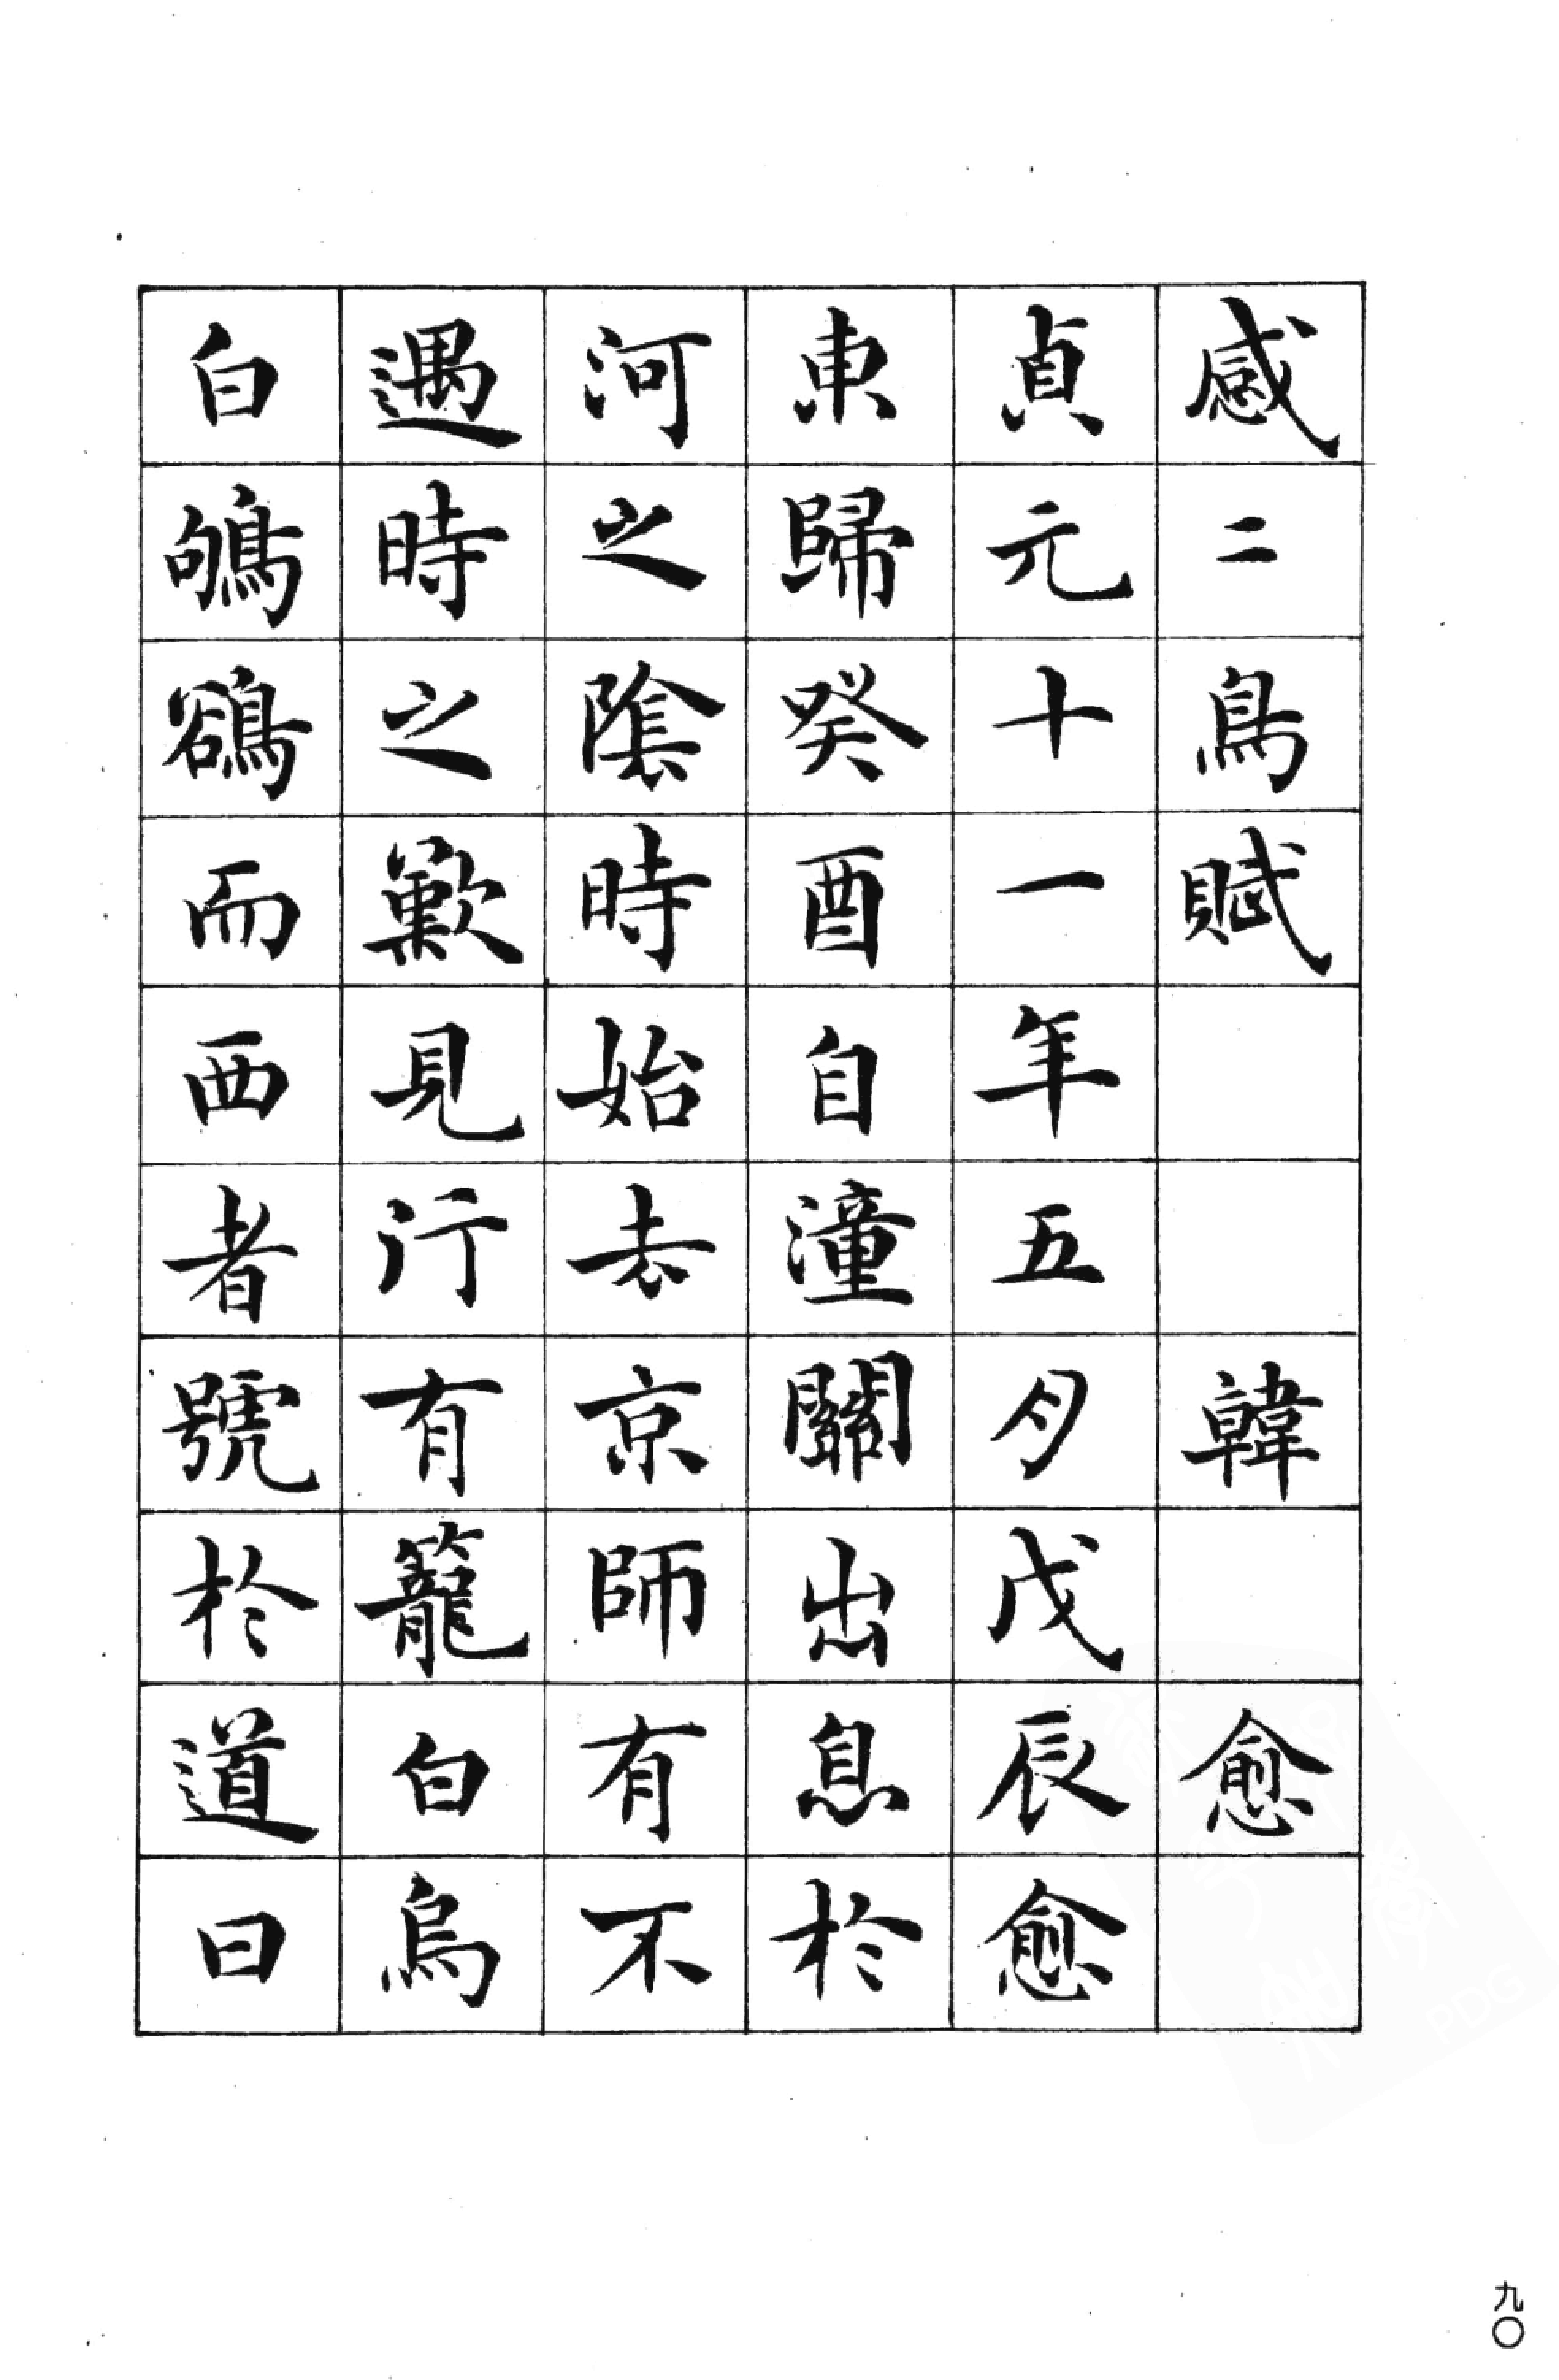 感二鳥賦 韓愈
貞元十一年五月戊辰愈
東歸癸酉自潼關出息於
河之陰時始去京師有不
遇時之歎見行有籠白烏
白鴝鵒而西者號於道曰
九〇